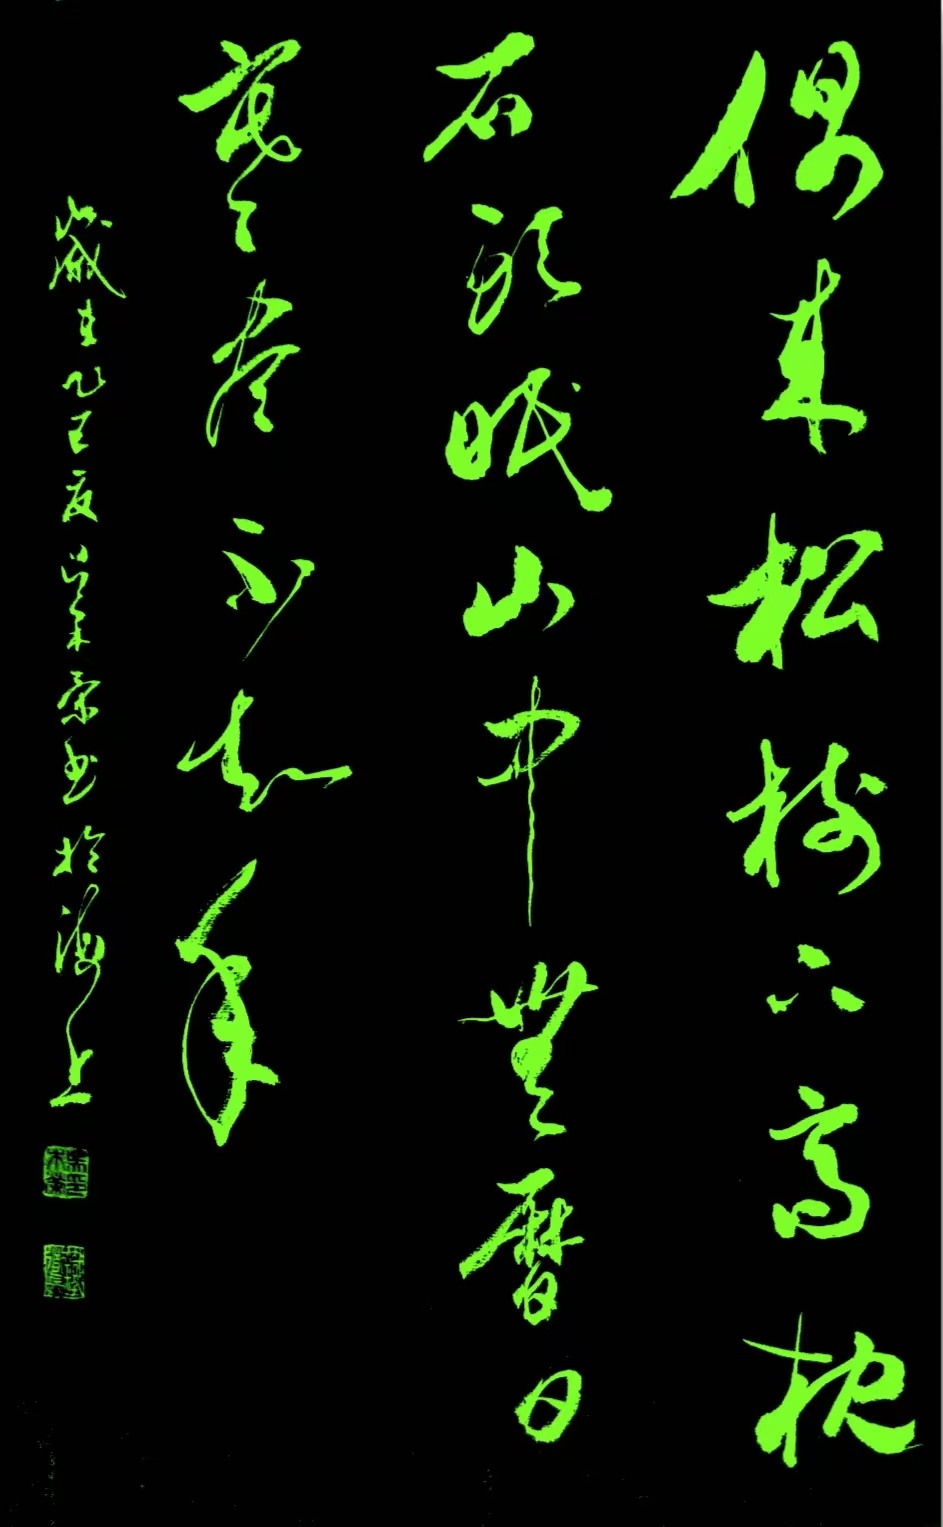 偶来松树下高枕
石头眠山中無曆日
寒尽不知年
歲在乙巳夏吴书於海上